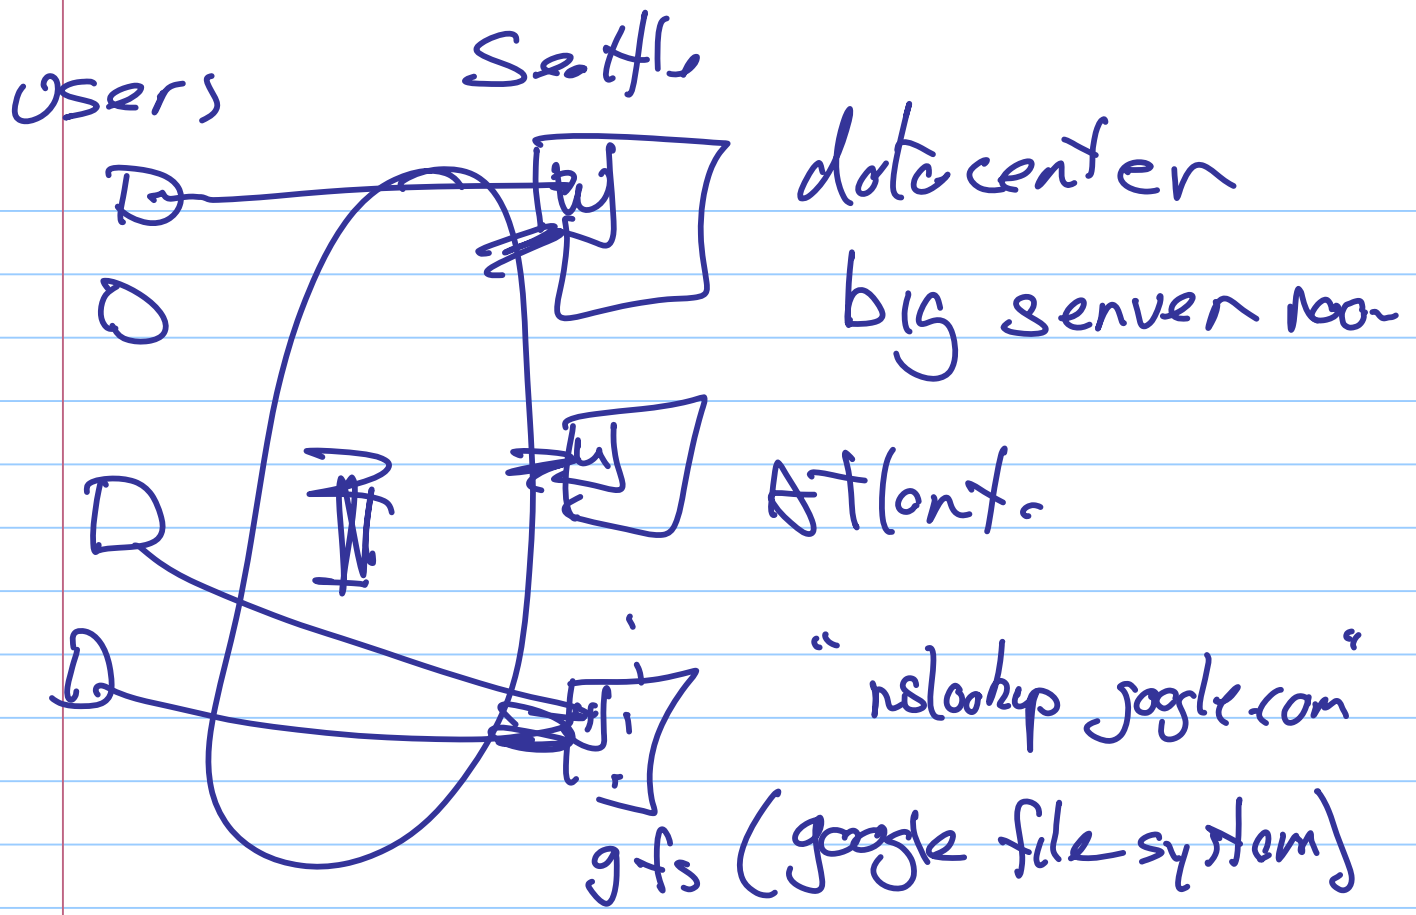 Users
Seattle
datacenter
W
big server room
W
Atlanta
"nslookup google.com"
gfs (google file system)